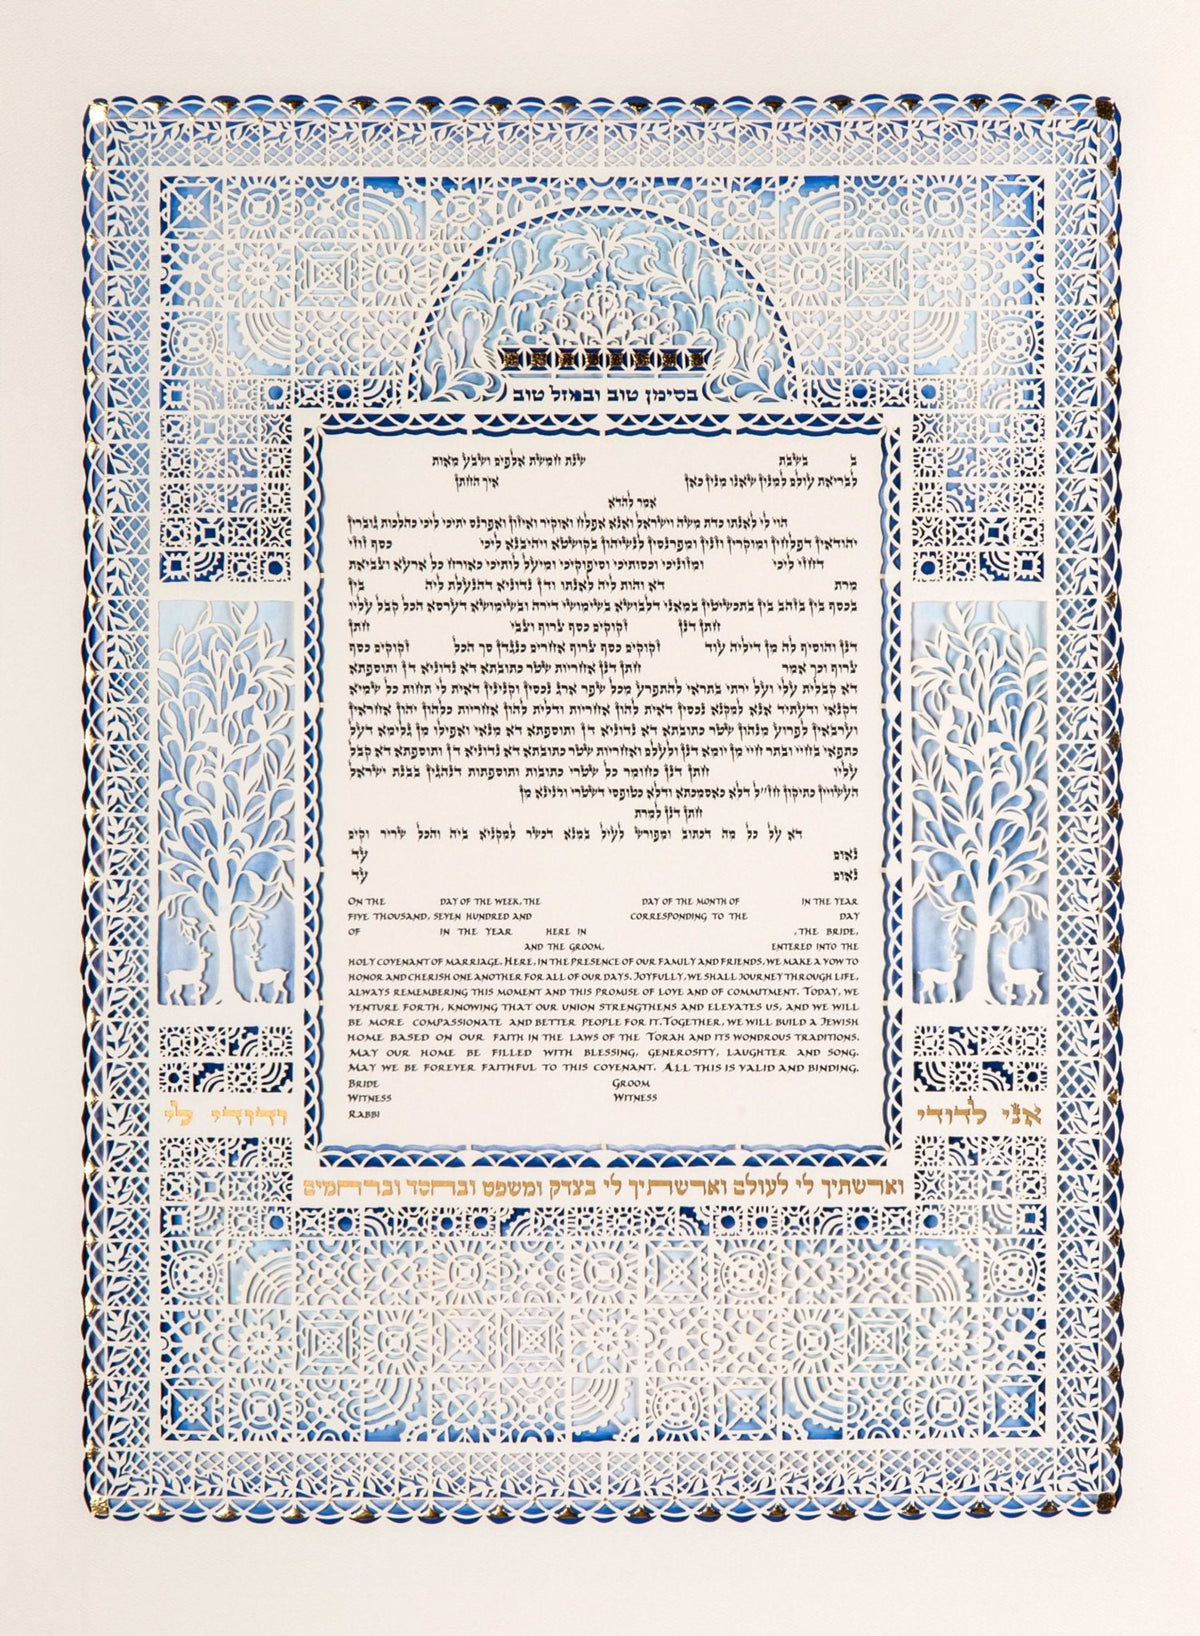 בסימן טוב ובמזל טוב
ב בשבת שנת חמשת אלפים ושבע מאות
לבריאת עולם למנין שאנו מנין כאן איך החתן
אמר להדא
הוי לי לאנתו כדת משה וישראל ואנא אפלח ואוקיר ואיזון ואפרנס יתיכי ליכי כהלכות גוברין
יהודאין דפלחין ומוקרין וזנין ומפרנסין לנשיהון בקושטא ויהיבנא ליכי כסף זוזי
דחזי ליכי ומזוניכי וכסותיכי וסיפוקיכי ומיעל לותיכי כאורח כל ארעא וצביאת
מרת דא והות ליה לאנתו ודן נדוניא דהנעלת ליה בין
בכסף בין בזהב בין בתכשיטין במאני דלבושא בשימושי דירה ובשימושיא דערסא הכל קבל עליו
חתן דנן זקוקים כסף צרוף וצבי חתן
דנן והוסיף לה מן דיליה עוד זקוקים כסף צרוף אחרים כנגדן סך הכל זקוקים כסף
צרוף וכך אמר חתן דנן אחריות שטר כתובתא דא נדוניא דן ותוספתא
דא קבלית עלי ועל ירתי בתראי להתפרע מכל שפר ארג נכסין וקנינין דאית לי תחות כל שמיא
דקנאי ודעתיד אנא למקנא נכסין דאית להון אחריות ודלית להון אחריות כלהון יהון אחראין
וערבאין לפרוע מנהון שטר כתובתא דא נדוניא דן ותוספתא דא מנאי ואפילו מן גלימא דעל
כתפאי בחיי ובתר חיי מן יומא דנן ולעלם ואחריות שטר כתובתא דא נדוניא דן ותוספתא דא קבל
עליו חתן דנן כחומר כל שטרי כתובות ותוספתות דנהגין בבנת ישראל
העשויין כתיקון חז״ל דלא כאסמכתא ודלא כטופסי דשטרי וקנינא מן
חתן דנן למרת
דא על כל מה דכתוב ומפורש לעיל במנא דכשר למקניא ביה והכל שריר וקים
נאום עד
נאום עד
On the day of the week, the day of the month of in the year
five thousand, seven hundred and corresponding to the day
of in the year here in , the bride,
and the groom, entered into the
holy covenant of marriage. Here, in the presence of our family and friends, we make a vow to
honor and cherish one another for all of our days. Joyfully, we shall journey through life,
always remembering this moment and this promise of love and of commitment. Today, we
venture forth, knowing that our union strengthens and elevates us, and we will
be more compassionate and better people for it. Together, we will build a Jewish
home based on our faith in the laws of the Torah and its wondrous traditions.
May our home be filled with blessing, generosity, laughter and song.
May we be forever faithful to this covenant. All this is valid and binding.
Bride Groom
Witness Witness
Rabbi
אני לדודי ודודי לי
וארשתיך לי לעולם וארשתיך לי בצדק ומשפט ובחסד וברחמים